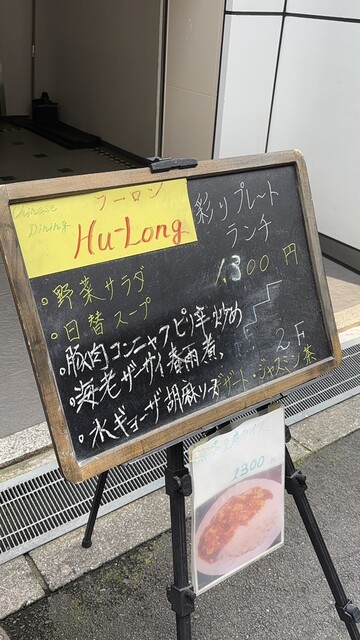 フーロン
Chinese
Dining
Hu-Long
彩りプレート
ランチ
1300円
・野菜サラダ
・日替スープ
・豚肉コンニャクピリ辛炒め
・海老ザーサイ春雨煮
・水ギョーザ胡麻ソース
デザート・ジャスミン茶
2F
1300